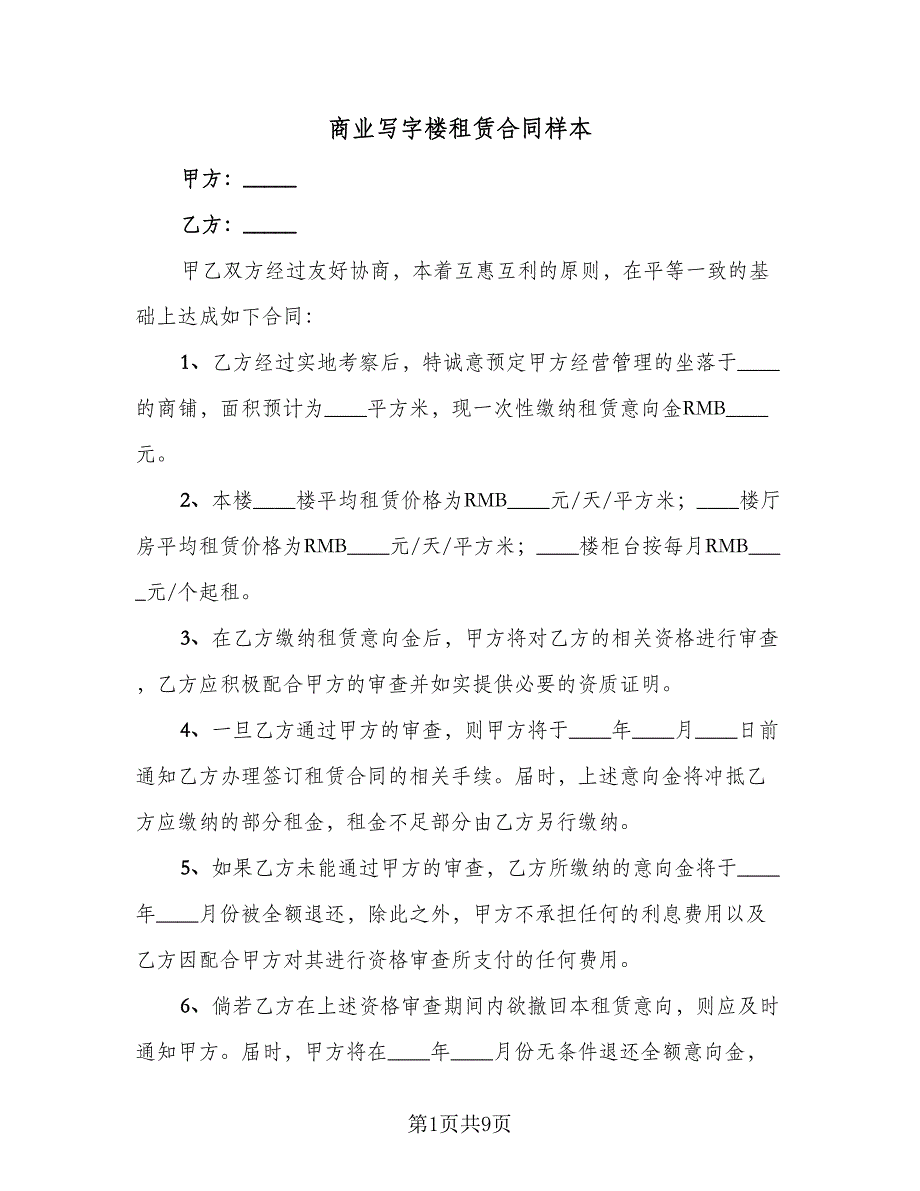 商业写字楼租赁合同样本
甲方：_____
乙方：_____
甲乙双方经过友好协商，本着互惠互利的原则，在平等一致的基
础上达成如下合同：
1、乙方经过实地考察后，特诚意预定甲方经营管理的坐落于____
的商铺，面积预计为____平方米，现一次性缴纳租赁意向金RMB____
元。
2、本楼____楼平均租赁价格为RMB____元/天/平方米；____楼厅
房平均租赁价格为RMB____元/天/平方米；____楼柜台按每月RMB___
_元/个起租。
3、在乙方缴纳租赁意向金后，甲方将对乙方的相关资格进行审查
，乙方应积极配合甲方的审查并如实提供必要的资质证明。
4、一旦乙方通过甲方的审查，则甲方将于____年____月____日前
通知乙方办理签订租赁合同的相关手续。届时，上述意向金将冲抵乙
方应缴纳的部分租金，租金不足部分由乙方另行缴纳。
5、如果乙方未能通过甲方的审查，乙方所缴纳的意向金将于____
年____月份被全额退还，除此之外，甲方不承担任何的利息费用以及
乙方因配合甲方对其进行资格审查所支付的任何费用。
6、倘若乙方在上述资格审查期间内欲撤回本租赁意向，则应及时
通知甲方。届时，甲方将在____年____月份无条件退还全额意向金，
第1页共9页